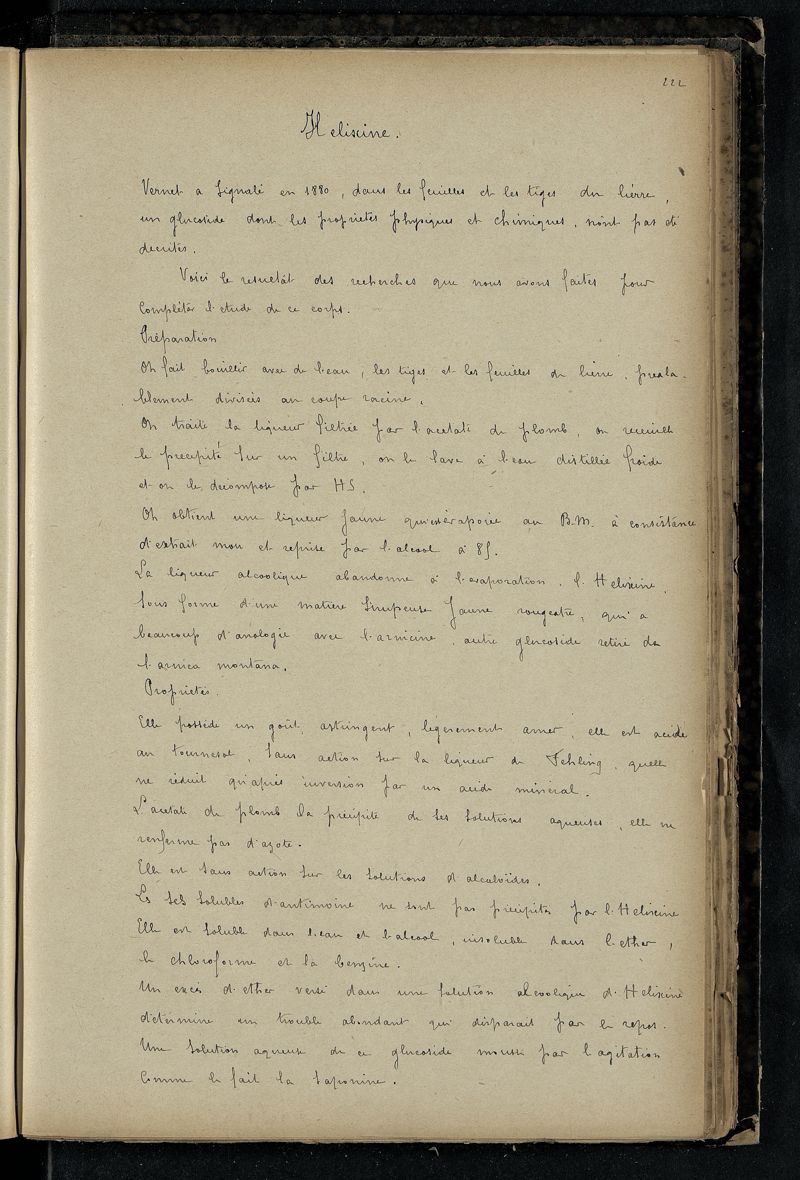 222
Helixine.
Vernet a signalé en 1880, dans les feuilles et les tiges du lierre,
un glucoside dont les propriétés physiques et chimiques, n'ont pas été
décrites.
Voici le resultât des recherches que nous avons faites pour
complêter l'etude de ce corps.
Préparation
On fait bouillir avec de l'eau, les tiges et les feuilles de lierre, préala-
blement divisées au coupe racine.
On traite la liqueur filtrée par l'acetate de plomb, on recueille
le precipité sur un filtre, on le lave à l'eau distillée froide
et on le décompose par HS.
On obtient une liqueur jaune qui est évaporée au B.M. à consistance
d'extrait mou et reprise par l'alcool à 85.
La liqueur alcoolique abandonne à l'evaporation, l'Helixine,
sous forme d'une matière sirupeuse jaune rougeatre, qui a
beaucoup d'analogie avec l'arnicine, autre glucoside retiré de
l'arnica montana.
Propriétés.
Elle possède un goût astringent, légèrement amer, elle est acide
au tournesol, sans action sur la liqueur de Fehling, quelle
ne réduit qu'après inversion par un acide minéral.
L'acetate de plomb la précipite de ses solutions aqueuses, elle ne
renferme pas d'azote.
Elle est sans action sur les solutions d'alcaloïdes.
Les sels solubles d'antimoine ne sont pas précipités par l'Helixine
Elle est soluble dans l'eau et l'alcool, insoluble dans l'ether,
le chloroforme et la benzine.
Un excès d'ether versé dans une solution alcoolique d'Helixine
détermine un trouble abondant qui disparait par le repos.
Une solution aqueuse de ce glucoside mousse par l'agitation
comme le fait la saponine.